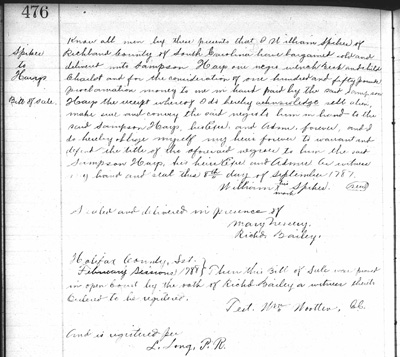 476
Spikes
to
Harps
Bill of Sale.
Know all men by these presents that I William Spikes of
Richland County of South Carolina have bargained sold and
delivered unto Sampson Harp one negro wench and child
Charlot and for the consideration of one hundred and fifty pounds
proclamation money to me in hand paid by the said Sampson
Harp the receipt whereof I do hereby acknowledge sell
make sure and convey the said negroes him in hand to the
said Sampson Harp, his and Adms. forever, and I
do hereby oblige myself my heirs forever to warrant and
defend the title of the aforesaid negroes to him the said
Sampson Harp, his heirs Exrs and Admrs. As witness
my hand and seal this 8th day of September 1787.
William his Spikes. (Seal)
mark
Sealed and delivered in presence of
Mary
Richd. Bailey.
Halifax County, Sct.
February Sessions 1788 } Then this Bill of Sale was proved
in open Court by the oath of Richd Bailey a witness thereto
Ordered to be registered.
Test. Wm Wootten, CC.
And is registered per
L. Long, P. R.